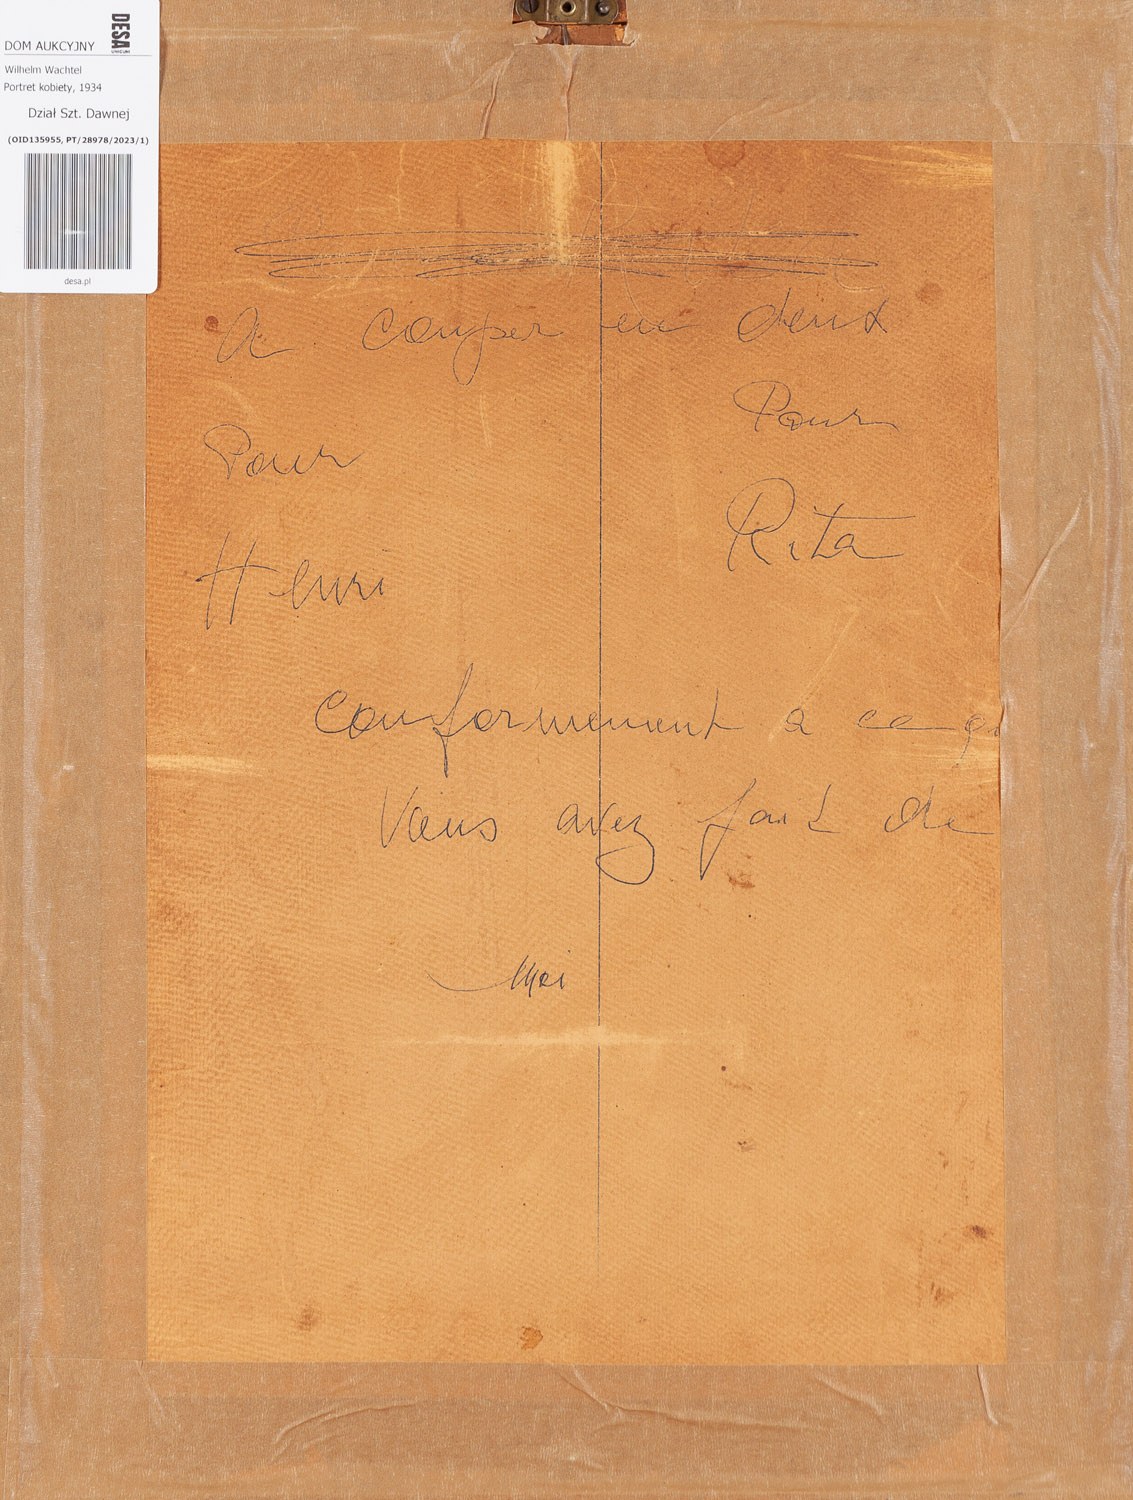 DESA
UNICUM
DOM AUKCYJNY
Wilhelm Wachtel
Portret kobiety, 1934
Dział Szt. Dawnej
(OID135955, PT/28978/2023/1)
desa.pl
A couper en deux
Pour
Pour
Rita
Henri
Conformement a ce
Vous avez fait de
Moi